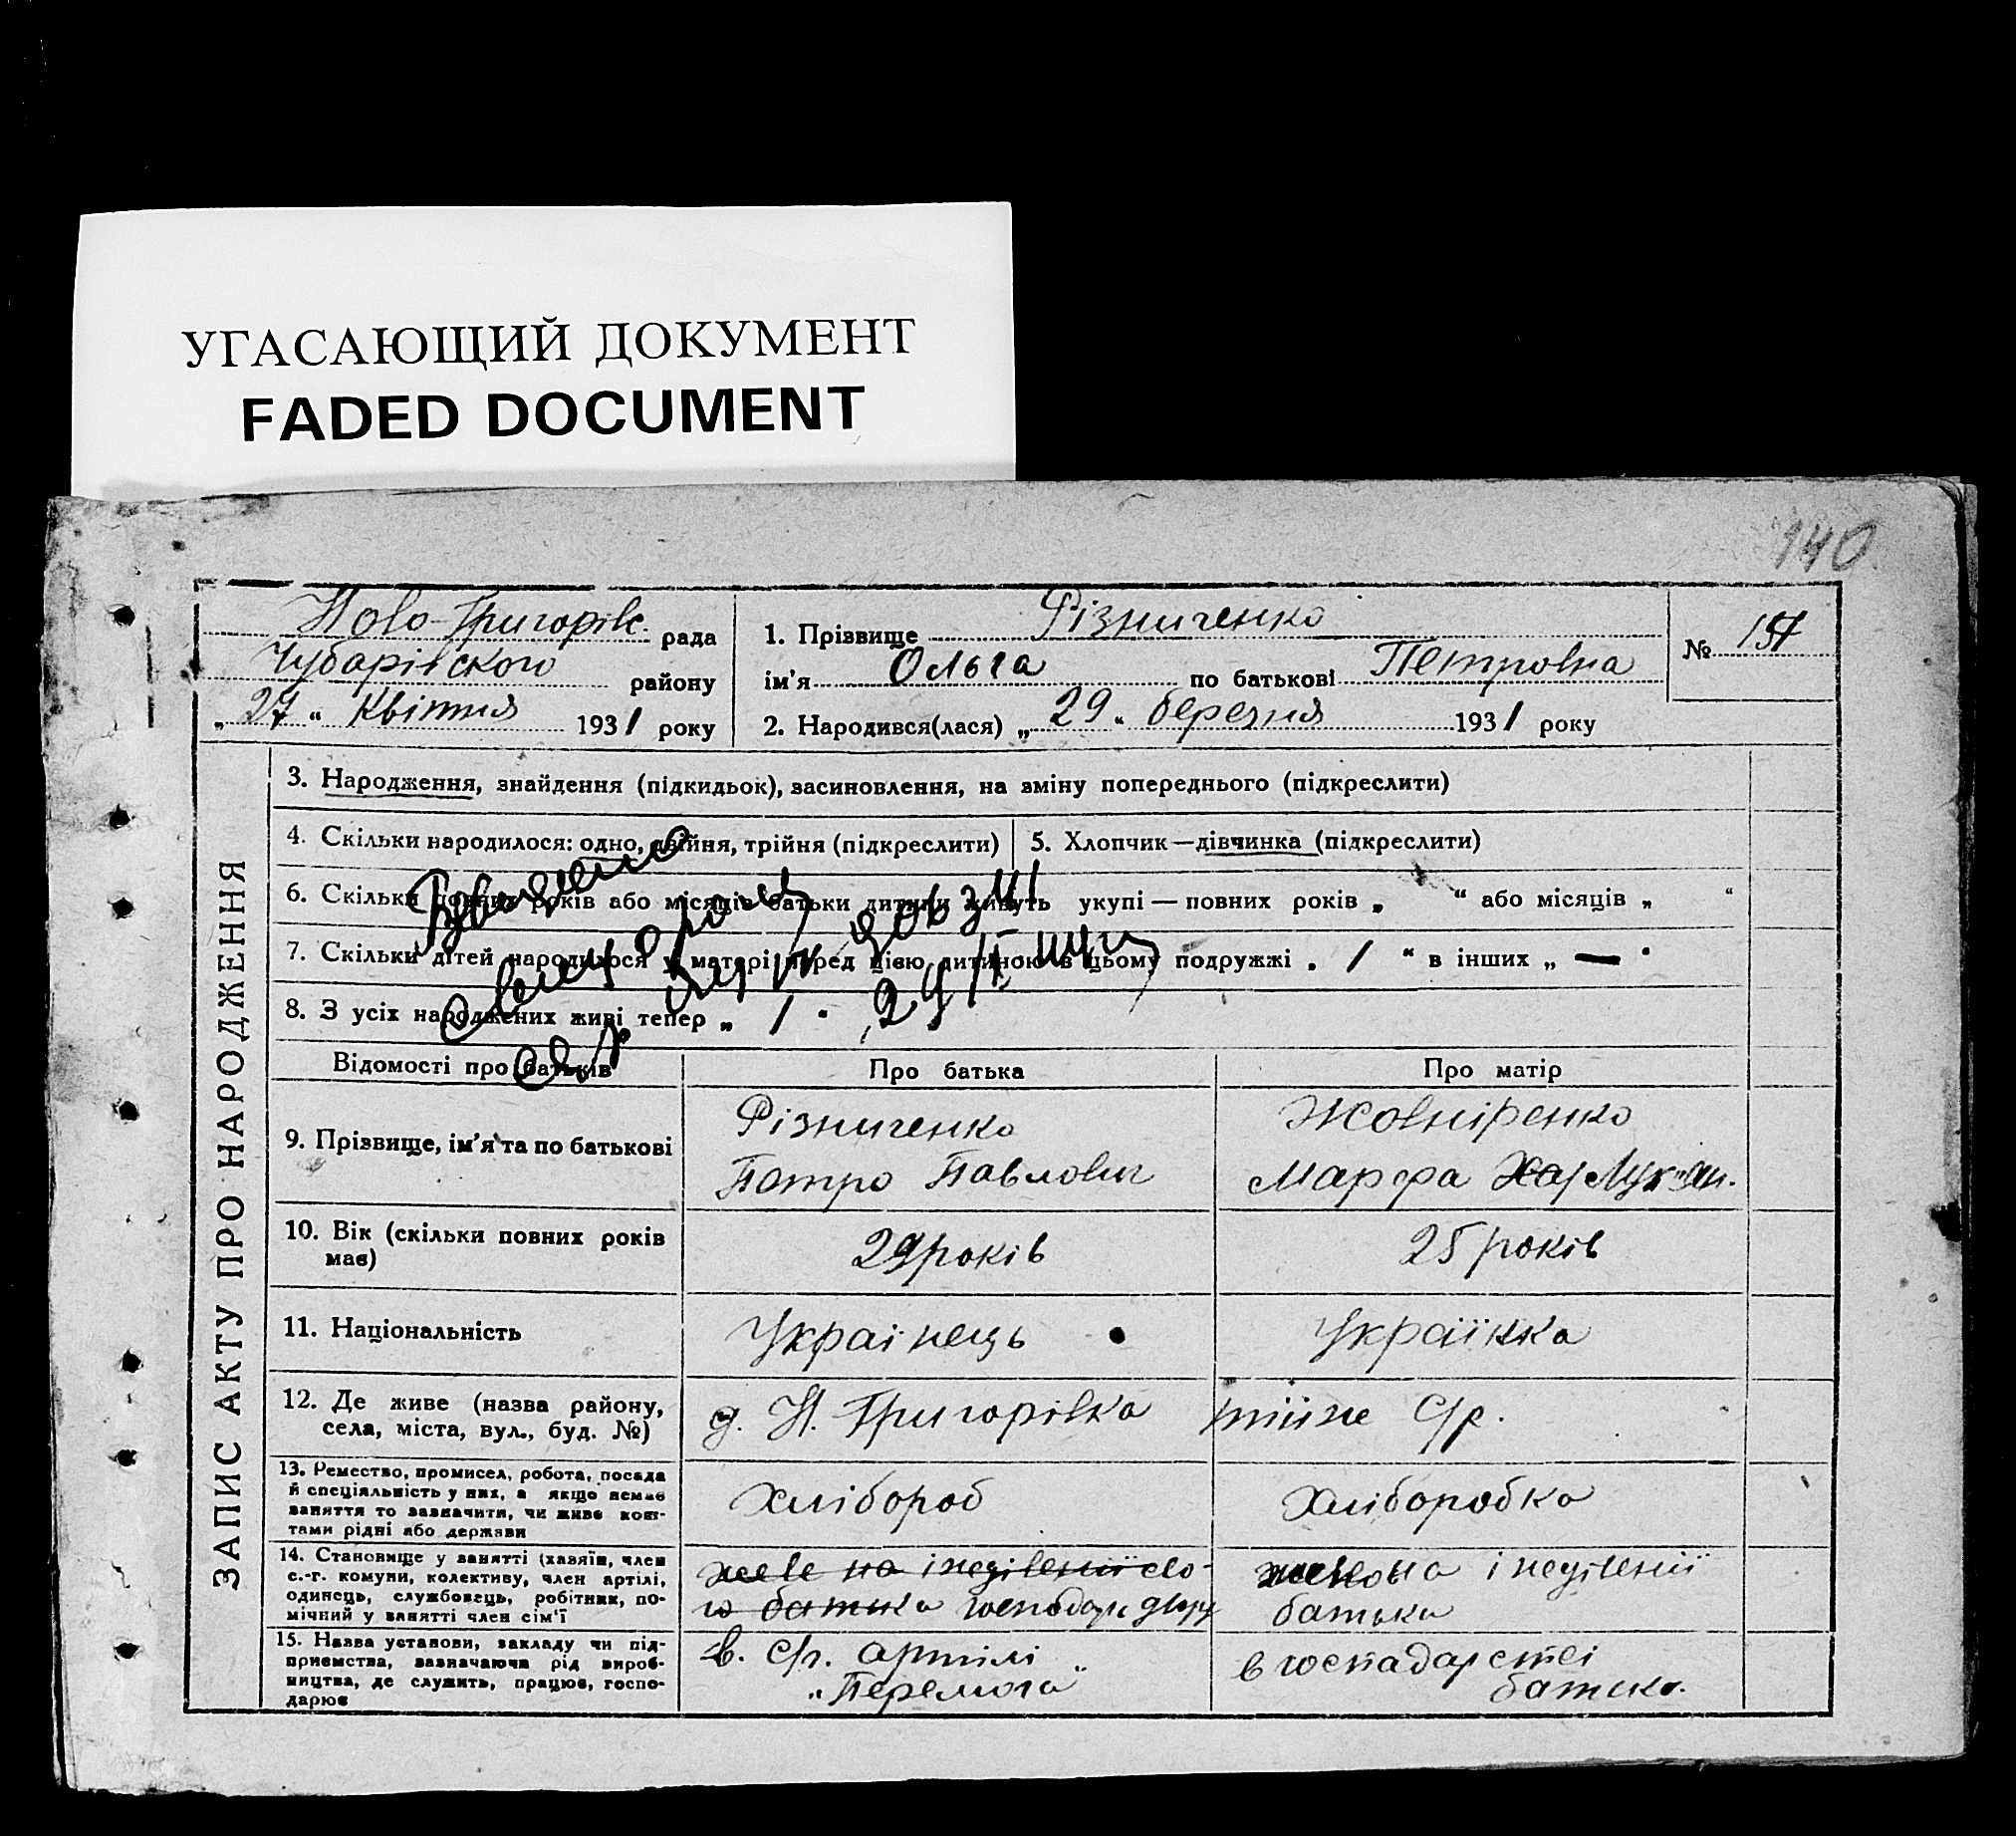 УГАСАЮЩИЙ ДОКУМЕНТ
FADED DOCUMENT
140
Ново-Григорівс. рада
Чубарівского району
„27“ Квітня 1931 року
1. Прізвище Різниченко
ім'я Ольга по батькові Петровна
2. Народився(лася) „29“ березня 1931 року
№ 157
ЗАПИС АКТУ ПРО НАРОДЖЕННЯ
3. Народження, знайдення (підкидьок), засиновлення, на зміну попереднього (підкреслити)
4. Скільки народилося: одно, двійня, трійня (підкреслити)
5. Хлопчик—дівчинка (підкреслити)
6. Скільки повних років або місяців батьки дитини живуть укупі — повних років „ “ або місяців „ “
7. Скільки дітей народилося у матері перед цією дитиною в цьому подружжі „ 1 “ в інших „ — “
8. З усіх народжених живі тепер „ 1 “
Відомості про батьків
Про батька
Про матір
9. Прізвище, ім'я та по батькові
Різниченко
Петро Павлович
Жовніренко
Марфа Хар Лук'ян.
10. Вік (скільки повних років
має)
29 років
25 років
11. Національність
Украінець
Українка
12. Де живе (назва району,
села, міста, вул., буд. №)
д. Н. Григорівка
тійже С/р.
13. Ремество, промисел, робота, посада
й спеціяльність у них, а якщо немає
заняття то зазначити, чи живе кош-
тами рідні або держави
Хлібороб
Хліборобка
14. Становище у занятті (хазяїн, член
с.-г. комуни, колективу, член артілі,
одинець, службовець, робітник, по-
мічний у занятті член сім'ї
живе на
батька
на
батька
15. Назва установи, закладу чи під-
приємства, зазначаюча рід вироб-
ництва, де служить, працює, госпо-
дарює
в. С/г. артілі
„Перемога“
в господарстві
батька.